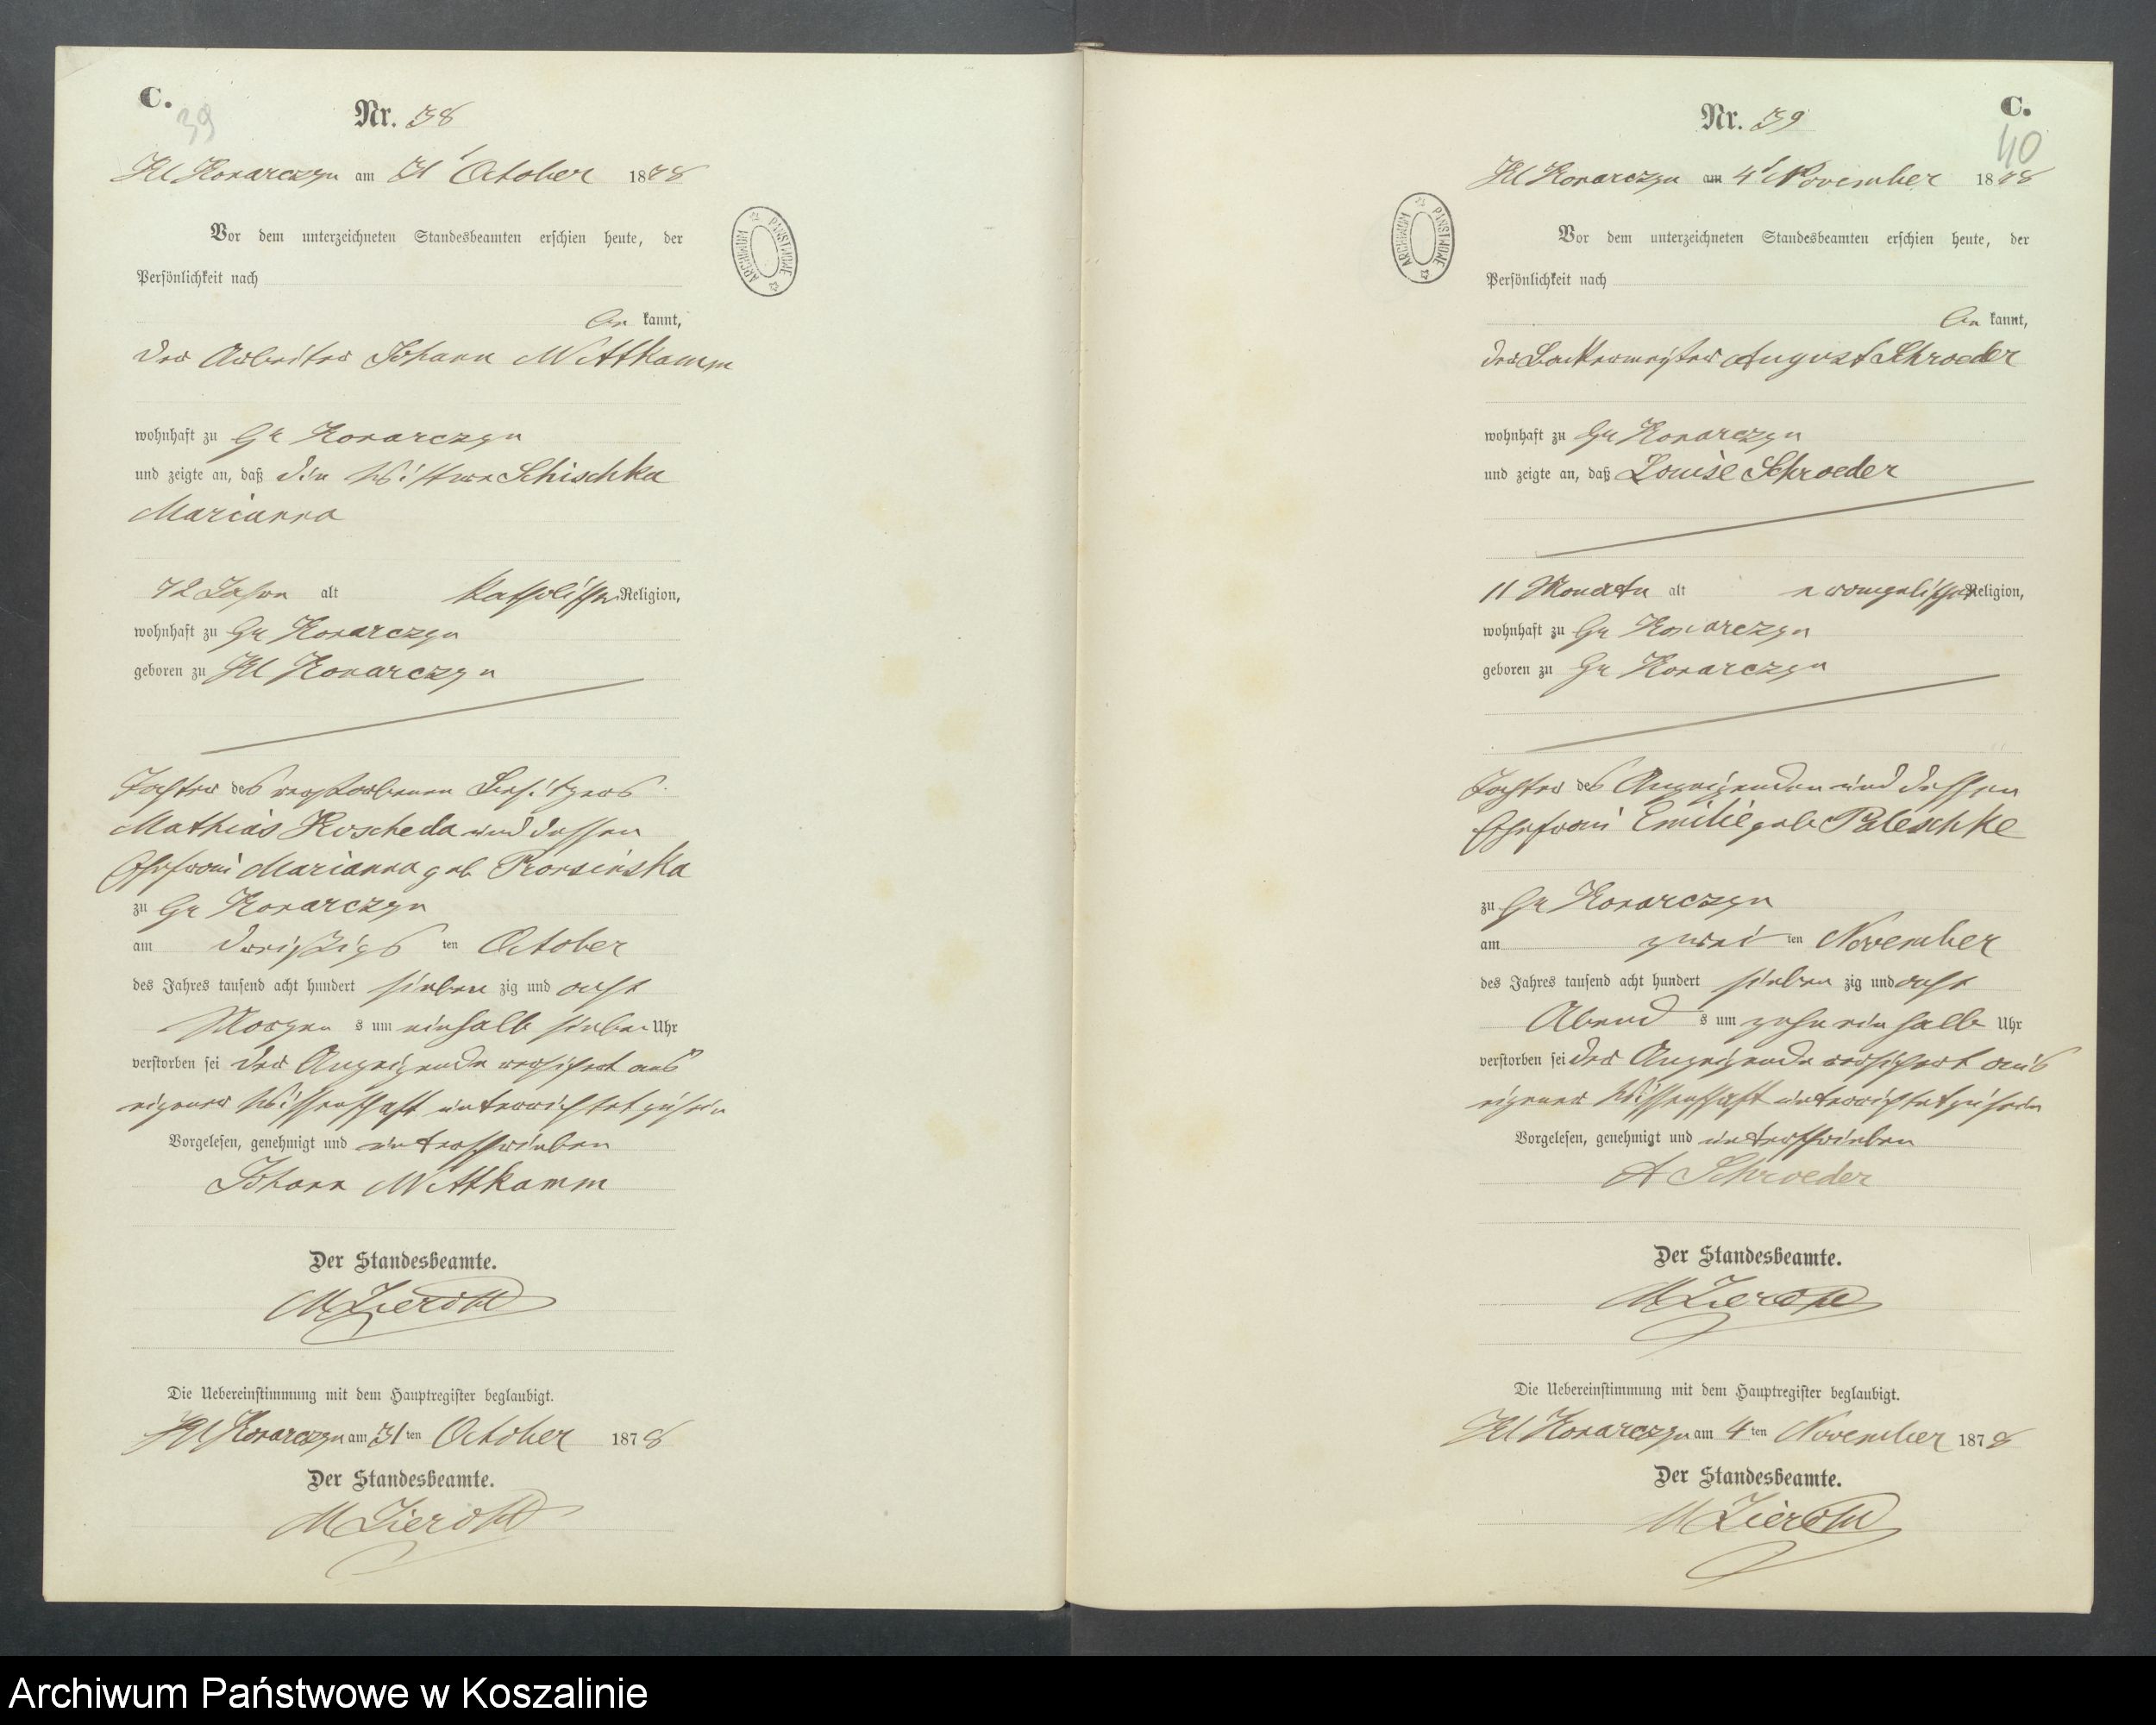 C.
39
Nr. 38
Kl Konarczyn am 31t October 1878
Vor dem unterzeichneten Standesbeamten erschien heute, der
Persönlichkeit nach
be kannt,
der Arbeiter Johann Wittkamm
wohnhaft zu Gr Konarczyn
und zeigte an, daß die Wittwe Schischka
Marianna
72 Jahre alt katholischer Religion,
wohnhaft zu Gr Konarczyn
geboren zu Kl Konarczyn
Tochter des verstorbenen Besitzers
Mathias Koscheda und dessen
Ehefrau Marianna geb
zu Gr Konarczyn
am dreißigs ten October
des Jahres tausend acht hundert sieben zig und acht
Morgen s um einhalb sieben Uhr
verstorben sei der Anzeigende versichert aus
eigener Wissenschaft unterrichtet zu sein
Vorgelesen, genehmigt und unterschrieben
Johann Wittkamm
Der Standesbeamte.
M Zieroth
Die Uebereinstimmung mit dem Hauptregister beglaubigt.
Kl Konarczyn am 31 ten October 1878
Der Standesbeamte.
M Zieroth
ARCHIWUM PAŃSTWOWE
C.
40
Nr. 39
Kl Konarczyn am 4t November 1878
Vor dem unterzeichneten Standesbeamten erschien heute, der
Persönlichkeit nach
be kannt,
der Backermeister August Schroeder
wohnhaft zu Gr Konarczyn
und zeigte an, daß Louise Schroeder
11 Monate alt evangelischer Religion,
wohnhaft zu Gr Konarczyn
geboren zu Gr Konarczyn
Tochter des Anzeigenden und dessen
Ehefrau Emilie geb Paleschke
zu Gr Konarczyn
am zwei ten November
des Jahres tausend acht hundert sieben zig und acht
Abend s um zehn ein halb Uhr
verstorben sei der Anzeigende versichert aus
eigener Wissenschaft unterrichtet zu sein
Vorgelesen, genehmigt und unterschrieben
A Schroeder
Der Standesbeamte.
M Zieroth
Die Uebereinstimmung mit dem Hauptregister beglaubigt.
Kl Konarczyn am 4 ten November 1878
Der Standesbeamte.
M Zieroth
ARCHIWUM PAŃSTWOWE
Archiwum Państwowe w Koszalinie